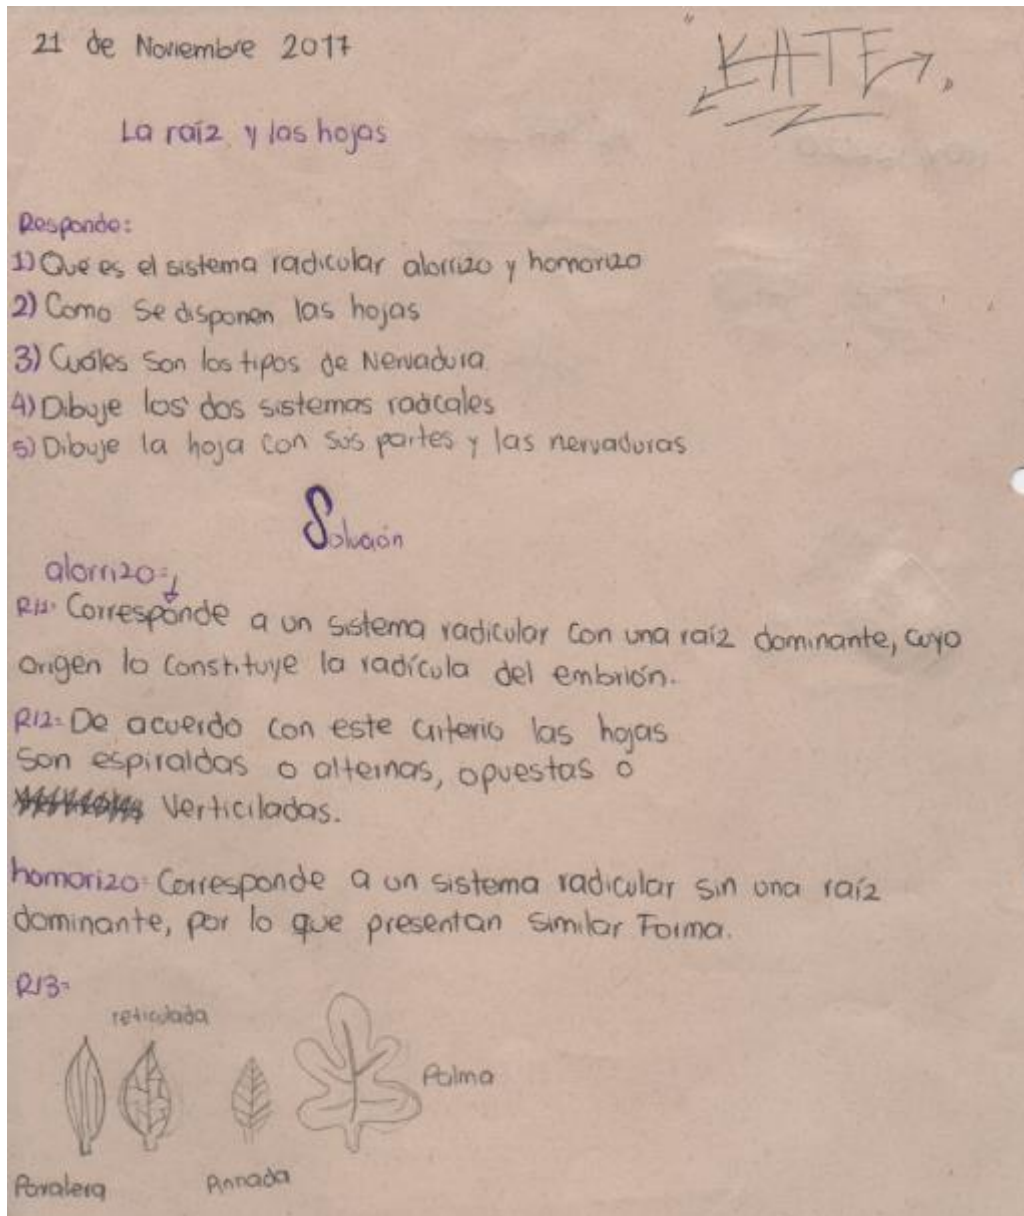 21 de Noviembre 2017
"KATE"
La raíz y las hojas
Responde:
1) Que es el sistema radicular alorrizo y homorizo
2) Como se disponen las hojas
3) Cuáles son los tipos de Nervadura
4) Dibuje los dos sistemas radicales
5) Dibuje la hoja con sus partes y las nervaduras
Solución
alorrizo:
R/1: Corresponde a un sistema radicular con una raíz dominante, cuyo
origen lo constituye la radícula del embrión.
R/2: De acuerdo con este criterio las hojas
son espiraldas o alternas, opuestas o
Verticiladas.
homorizo: Corresponde a un sistema radicular sin una raíz
dominante, por lo que presentan similar Forma.
R/3:
reticulada
Palma
Paralera
Pinnada